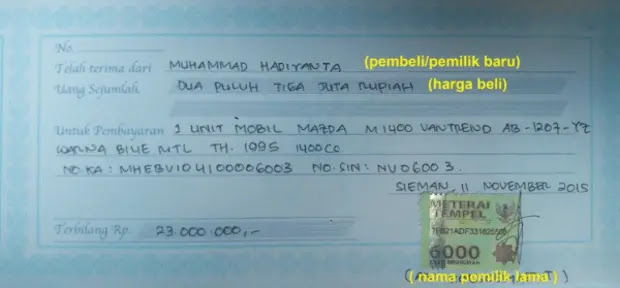 No.
Telah terima dari MUHAMMAD HADIYANTA (pembeli/pemilik baru)
Uang Sejumlah DUA PULUH TIGA JUTA RUPIAH (harga beli)
Untuk Pembayaran 1 UNIT MOBIL MAZDA M1400 VANTREND AB-1207-YZ
WARNA BLUE MTL TH. 1995 1400CC
NO KA: MHEBV104100006003 NO.SIN: NV06003.
SLEMAN, 11 NOVEMBER 2015
METERAI
TEMPEL
Terbilang Rp. 23.000.000,-
6000
( nama pemilik lama )